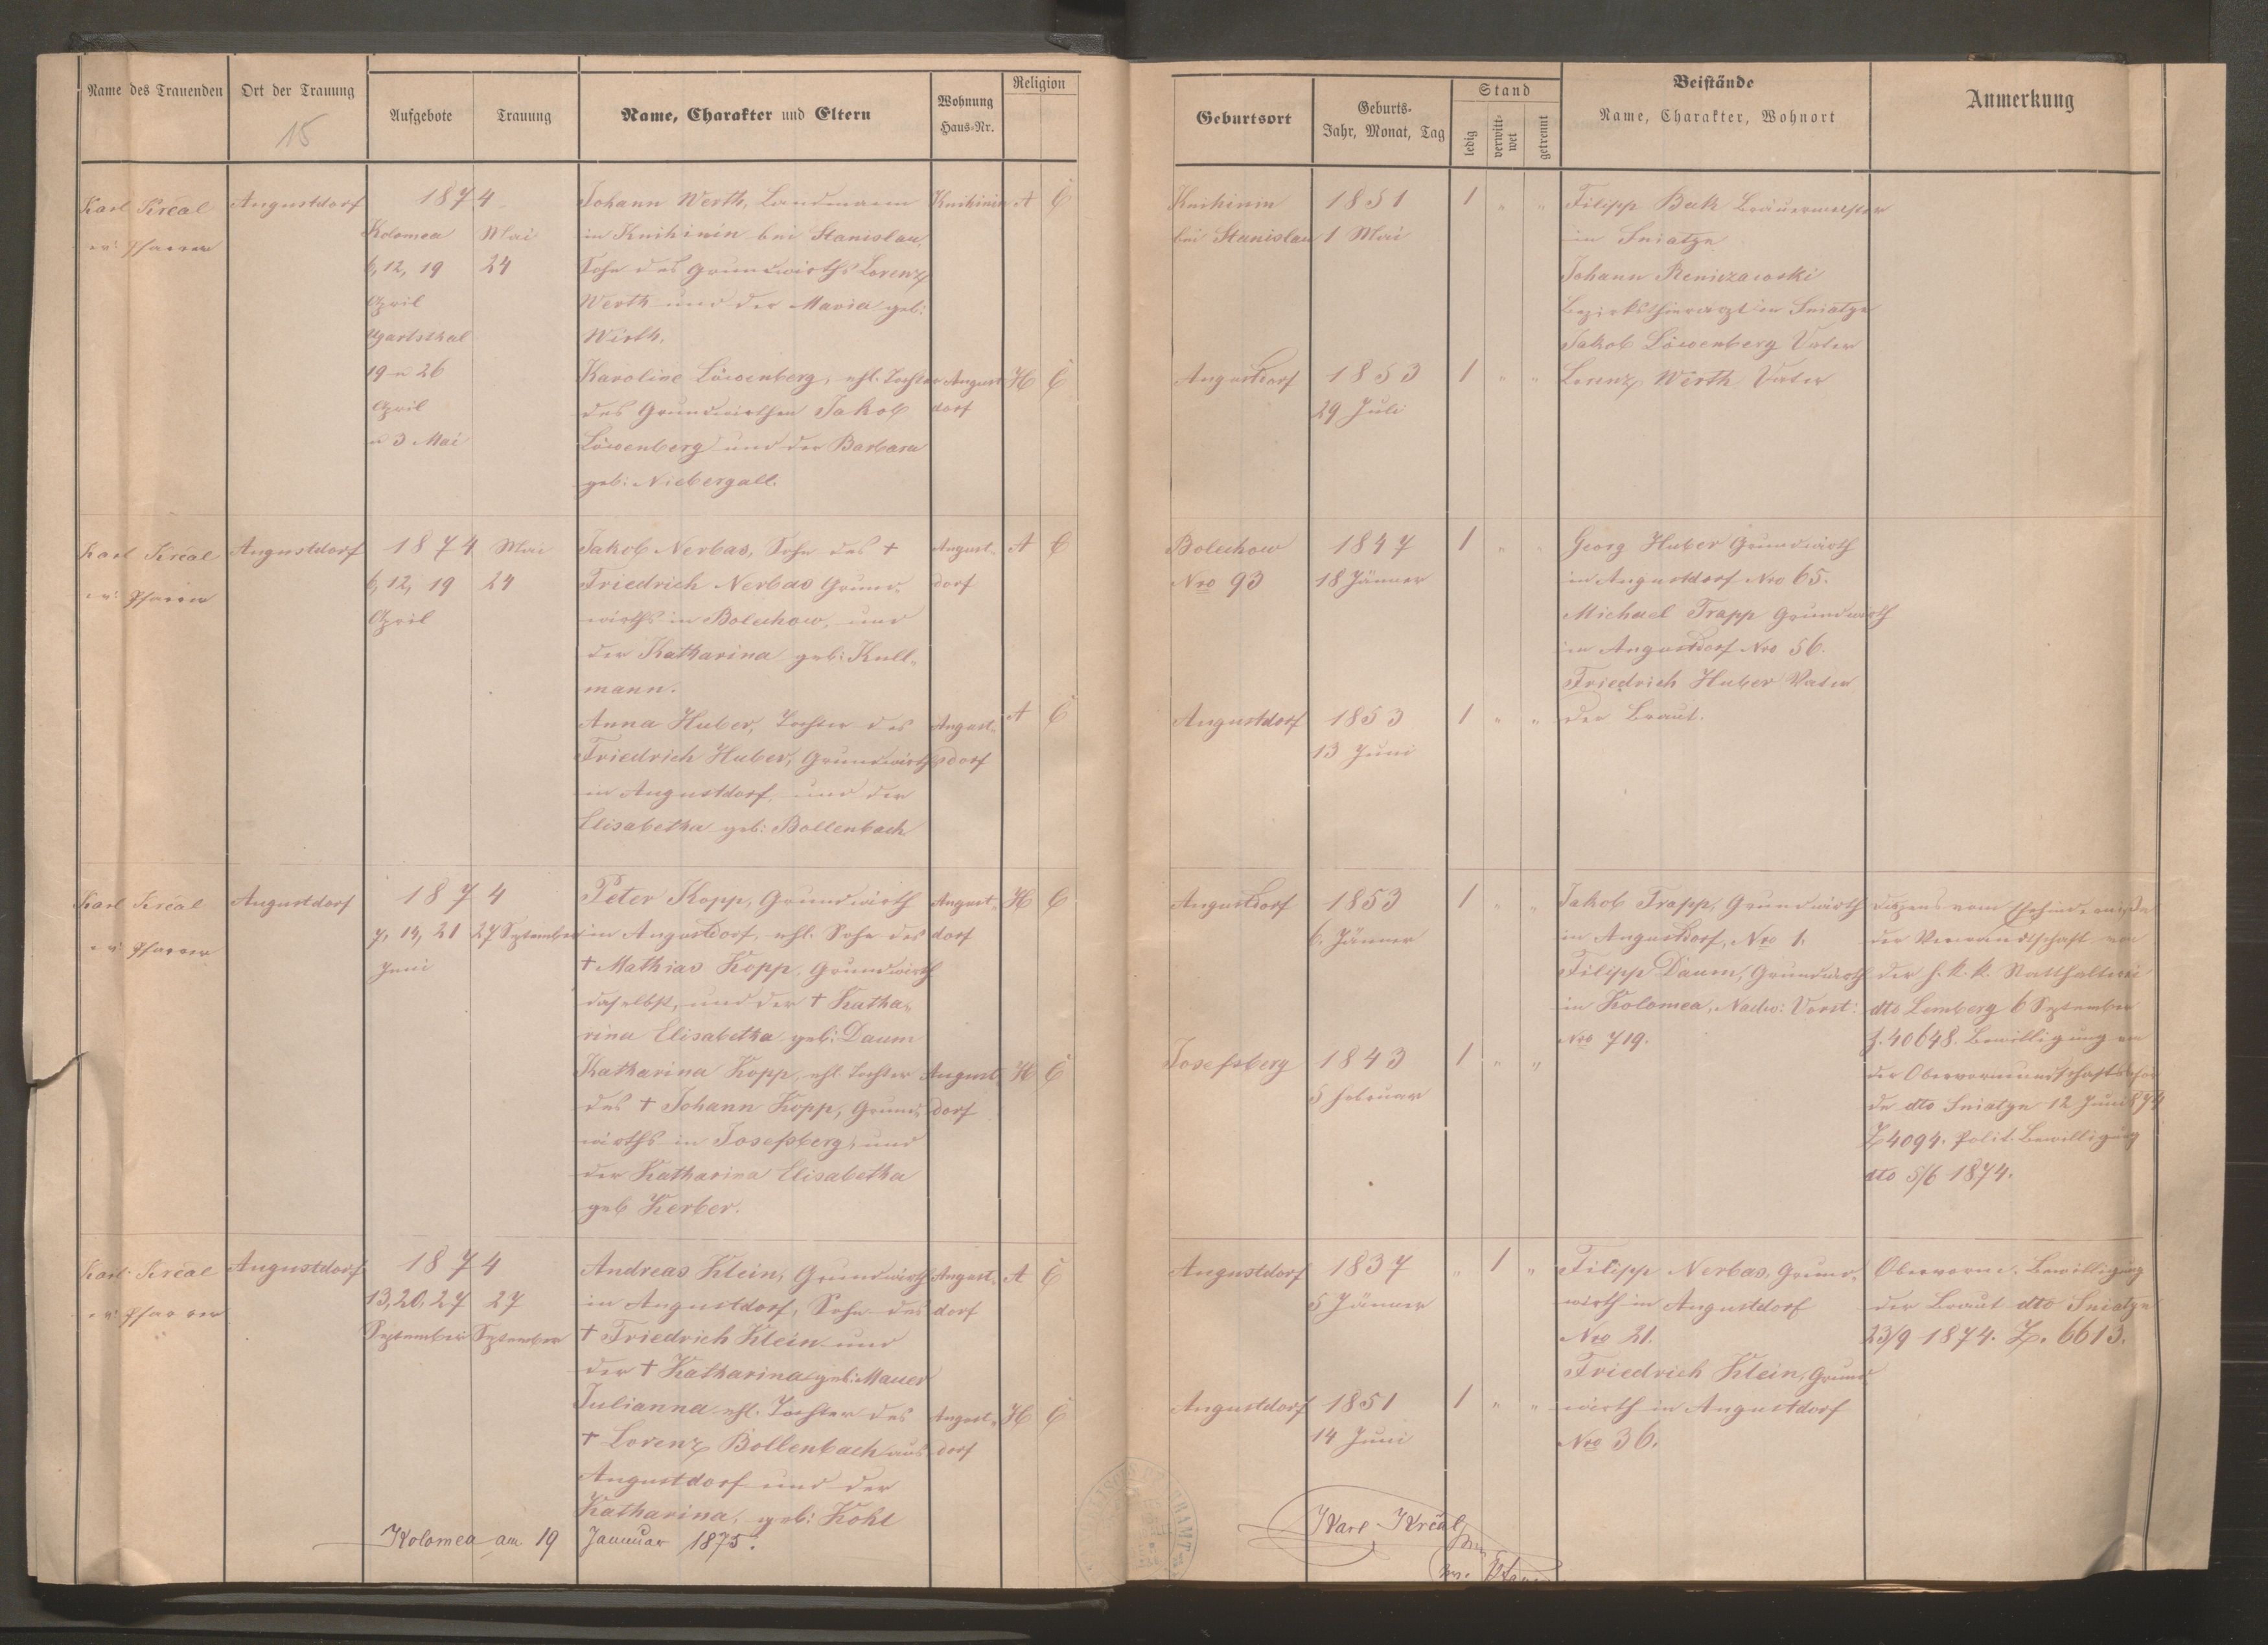 Name des Trauenden
Ort der Trauung
15
Aufgebote
Trauung
Name, Charakter und Eltern
Wohnung
Haus-Nr.
Religion
Geburtsort
Geburts-
Jahr, Monat, Tag
Stand
ledig
verwitt-
wet
getrennt
Beistände
Name, Charakter, Wohnort
Anmerkung
Karl Krčal
ev: Pfarrer
Augustdorf
1874
Kolomea
6, 12, 19
April
Ugartsthal
19 u 26
April
u 3 Mai
Mai
24
Johann Werth, Landmann
in Knihinin bei Stanislau,
Sohn des Grundwirths Lorenz
Werth und der Maria geb:
Wirth.
Knihinin
A
C
Karoline Löwenberg, ehl. Tochter
des Grundwirthen Jakob
Löwenberg und der Barbara
geb: Niebergall.
August
dorf
H
C
Knihinin
bei Stanislau
1851
1 Mai
1 " "
Augustdorf
1853
29 Juli
1 " "
Filipp Bak Bräuermeister
in Sniatyn
Johann
Bezirksthierarzt in Sniatyn
Jakob Löwenberg Vater
Lorenz Wirth Vater
Karl Krčal
ev: Pfarrer
Augustdorf
1874
6, 12, 19
April
Mai
24
Jakob Nerbas, Sohn des †
Friedrich Nerbas Grund-
wirths in Bolechow, und
der Katharina geb: Kull-
mann.
August-
dorf
A
C
Anna Huber, Tochter des
Friedrich Huber, Grundwirths
in Augustdorf, und der
Elisabetha geb: Bollenbach
August-
dorf
A
C
Bolechow
Nro 93
1847
18 Jänner
1 " "
Augustdorf
1853
13 Juni
1 " "
Georg Huber Grundwirth
in Augustdorf Nro 65.
Michael Trapp Grundwirth
in Augustdorf Nro 56.
Friedrich Huber Vater
der Braut.
Karl Krčal
ev: Pfarrer
Augustdorf
1874
7, 14, 21
Juni
27 September
Peter Kopp, Grundwirth
in Augustdorf, ehl. Sohn des
† Mathias Kopp, Grundwirth
daselbst, und der † Katha-
rina Elisabetha geb: Daum
August-
dorf
H
C
Katharina Kopp, ehl. Tochter
des † Johann Kopp, Grund-
wirths in Josefsberg, und
der Katharina Elisabetha
geb Kerber.
August-
dorf
H
C
Augustdorf
1853
6. Jänner
1 " "
Josefsberg
1843
5 Februar
1 " "
Jakob Trapp, Grundwirth
in Augustdorf, Nro 1.
Filipp Daum, Grundwirth
in Kolomea, Nadw: Vorst:
Nro 719.
Dispens vom Ehehinderniße
der Verwandtschaft von
der h. k. k. Statthalterei
dto Lemberg 6 September
Z. 40648. Bewilligung von
der Obervormundschaftsbehör
de dto Sniatyn 12 Juni 874
Z 4094. Polit. Bewilligung
dto 5/6 1874.
Karl Krčal
ev: Pfarrer
Augustdorf
1874
13, 20, 27
September
27
September
Andreas Klein, Grundwirth
in Augustdorf, Sohn des
† Friedrich Klein und
der † Katharina geb: Mauer
August-
dorf
A
C
Julianna ehl. Tochter des
† Lorenz Bollenbach aus
Augustdorf und der
Katharina, geb: Kohl
August-
dorf
H
C
Augustdorf
1837
5 Jänner
" 1 "
Augustdorf
1851
14 Juni
1 " "
Filipp Nerbas, Grund-
wirth in Augustdorf
Nro 21.
Friedrich Klein, Grund-
wirth in Augustdorf
Nro 36.
Obervorm. Bewilligung
der Braut dto Sniatyn
23/9 1874. Z. 6613.
Kolomea am 19 Januar 1875.
Karl Krčal
ev. Pfarrer